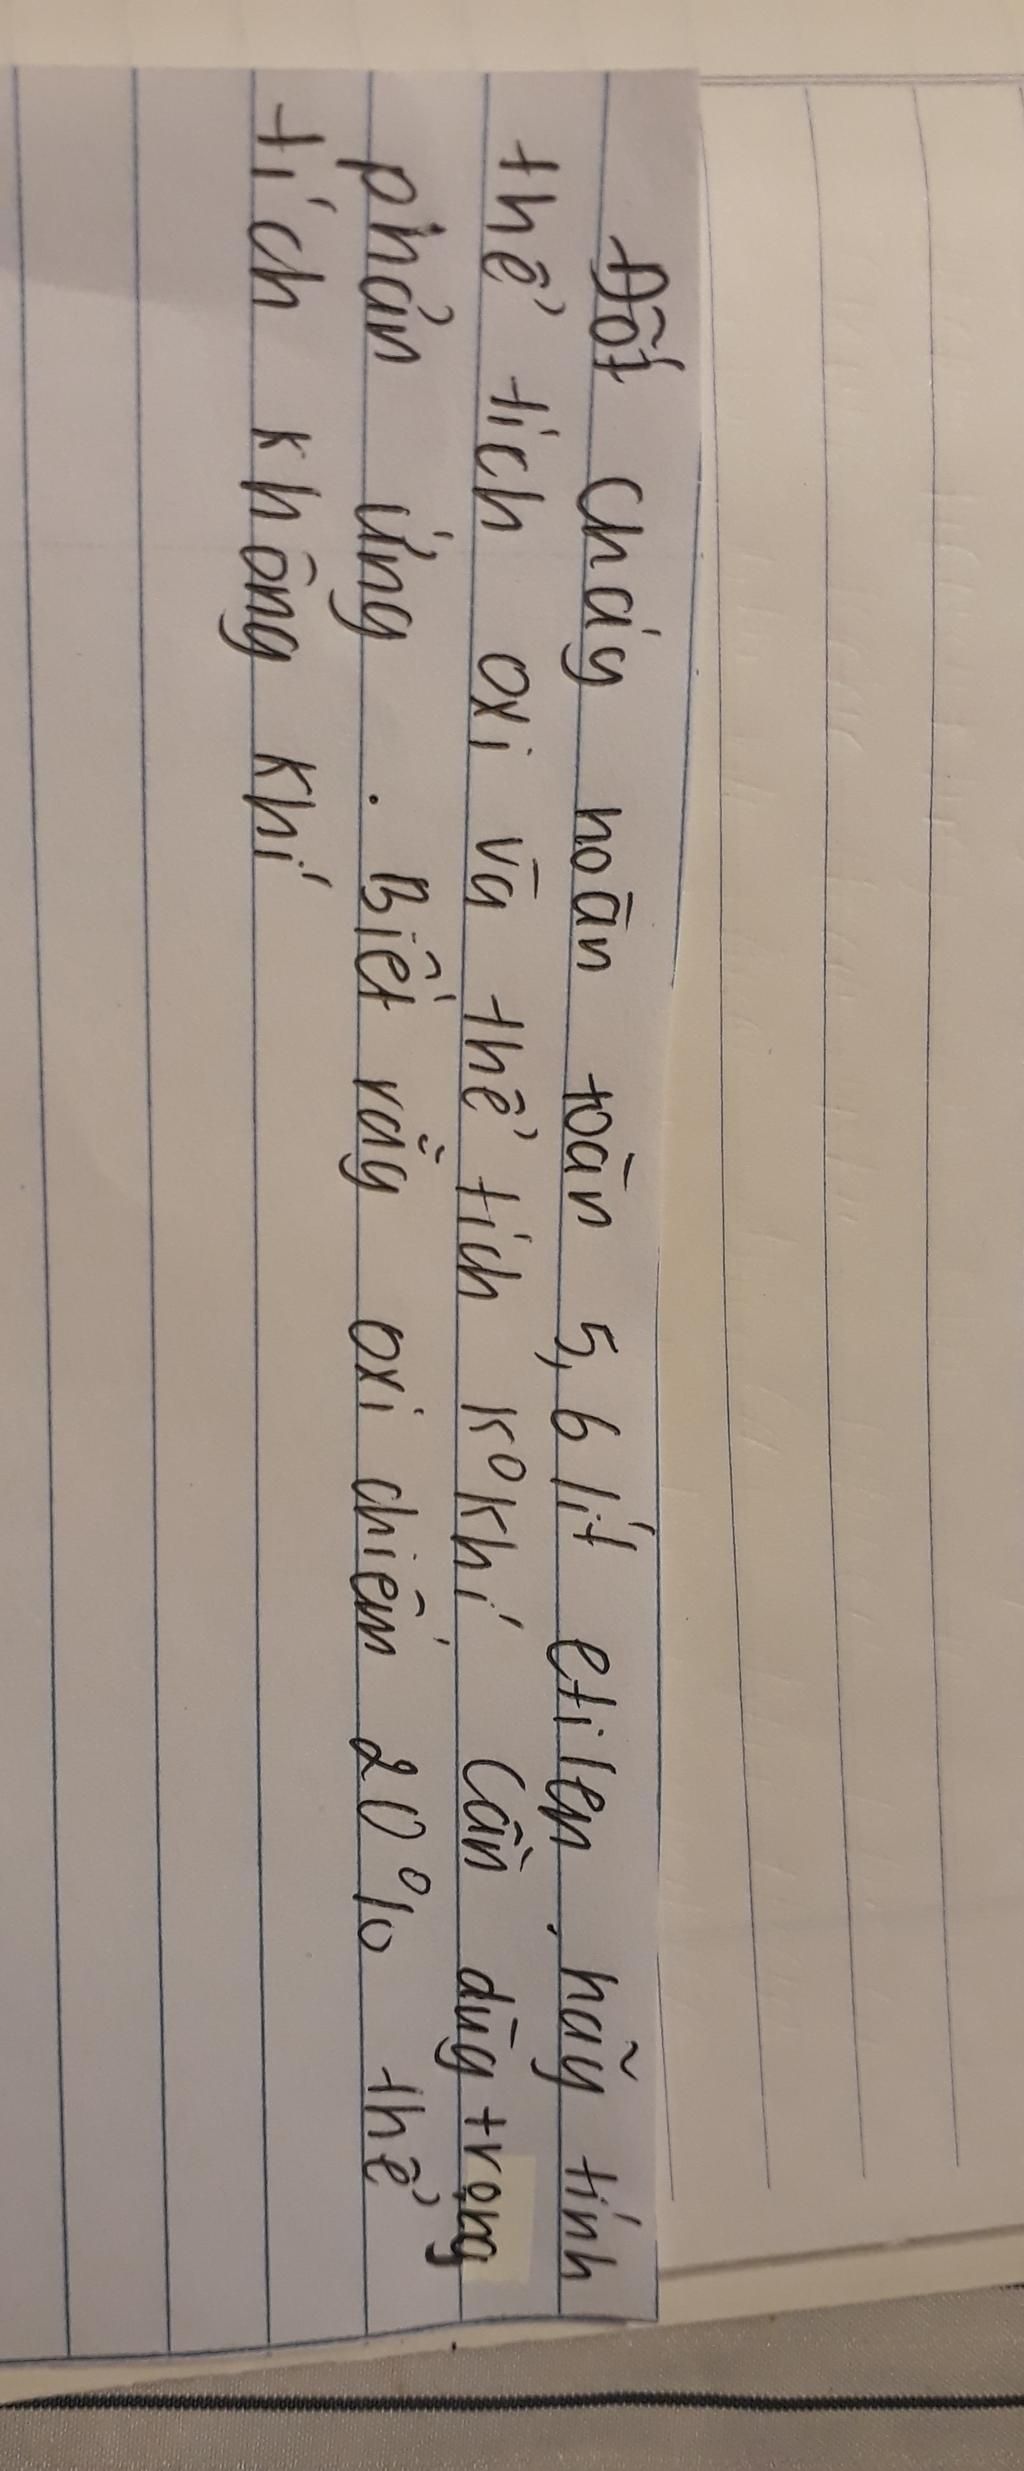 Đốt cháy hoàn toàn 5,6 lít etilen, hãy tính
thể tích oxi và thể tích k⁰khí cần dùg trong
phản ứng. Biết rằg oxi chiếm 20% thể
tích không khí